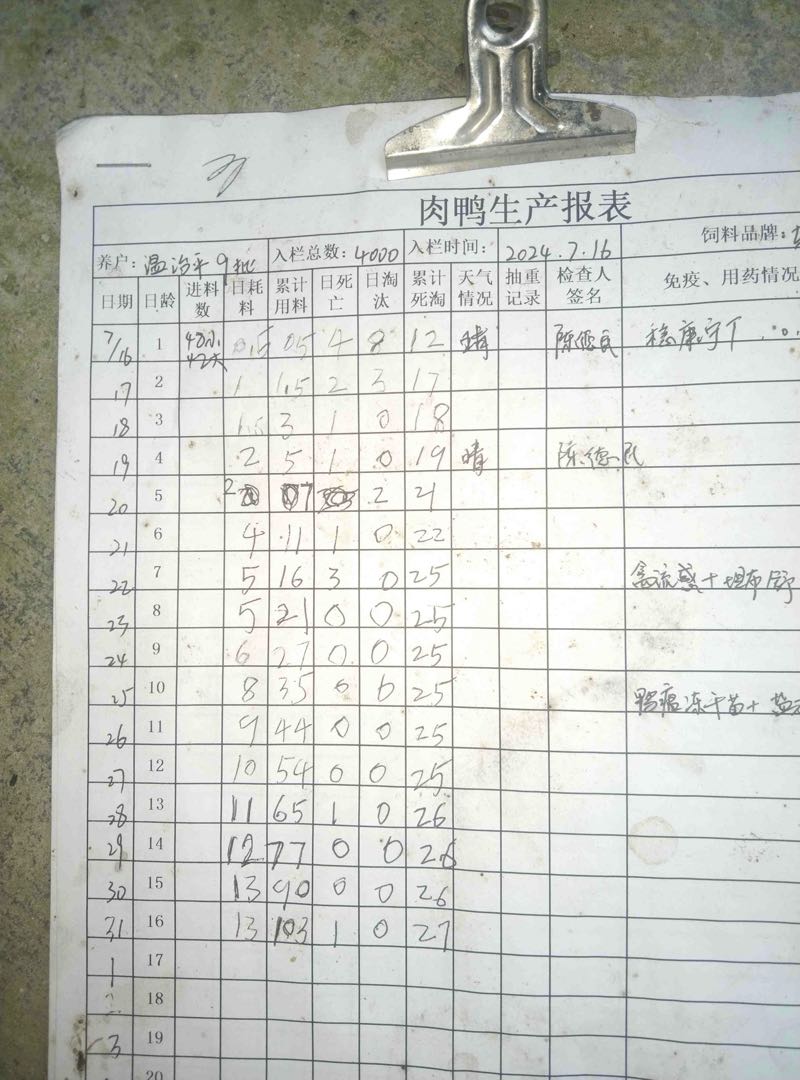 肉鸭生产报表
养户: 温治平9批 入栏总数: 4000 入栏时间: 2024.7.16 饲料品牌:
日期 日龄 进料数 日耗料 累计用料 日死亡 日淘汰 累计死淘 天气情况 抽重记录 检查人签名 免疫、用药情况
7/16 1 0.5 0.5 4 8 12 晴 陈德民
17 2 1 1.5 2 3 17
18 3 1.5 3 1 0 18
19 4 2 5 1 0 19 晴 陈德民
20 5 2 07 2 21
21 6 4 11 1 0 22
22 7 5 16 3 0 25 禽流感+
23 8 5 21 0 0 25
24 9 6 27 0 0 25
25 10 8 35 0 0 25 鸭瘟冻干苗+
26 11 9 44 0 0 25
27 12 10 54 0 0 25
28 13 11 65 1 0 26
29 14 12 77 0 0 26
30 15 13 90 0 0 26
31 16 13 103 1 0 27
1 17
2 18
3 19
20